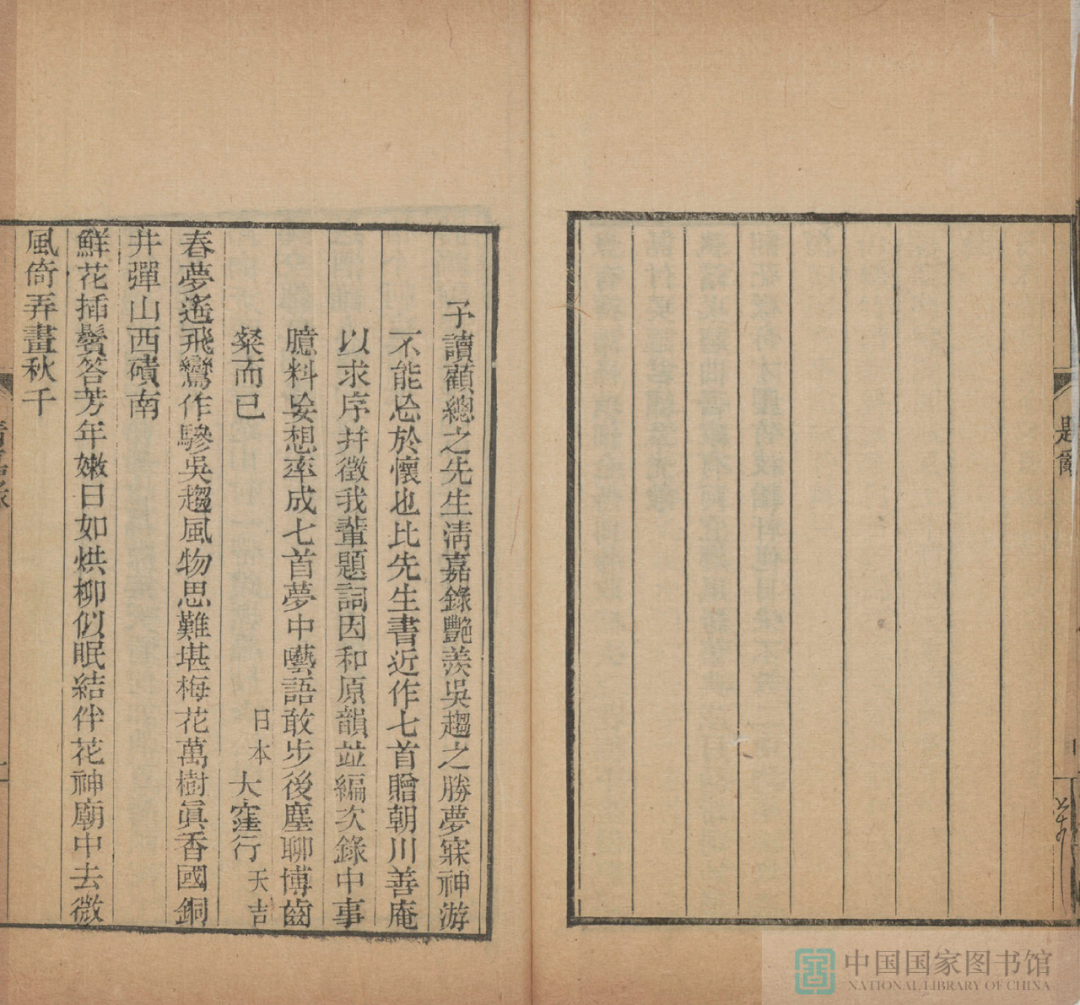 題爾
予讀顧總之先生淸嘉錄艷羨吳趨之勝夢寐神游
不能忘於懷也比先生書近作七首贈朝川善庵
以求序并徵我輩題詞因和原韻並編次錄中事
臆料妄想率成七首夢中囈語敢步後塵聊博齒
粲而已
日本 大窪行 天吉
春夢遙飛鸞作驂吳趨風物思難堪梅花萬樹眞香國銅
井彈山西磧南
鮮花插鬢答芳年嫩日如烘柳似眠結伴花神廟中去微
風倚弄畫秋千
中国国家图书馆
NATIONAL LIBRARY OF CHINA